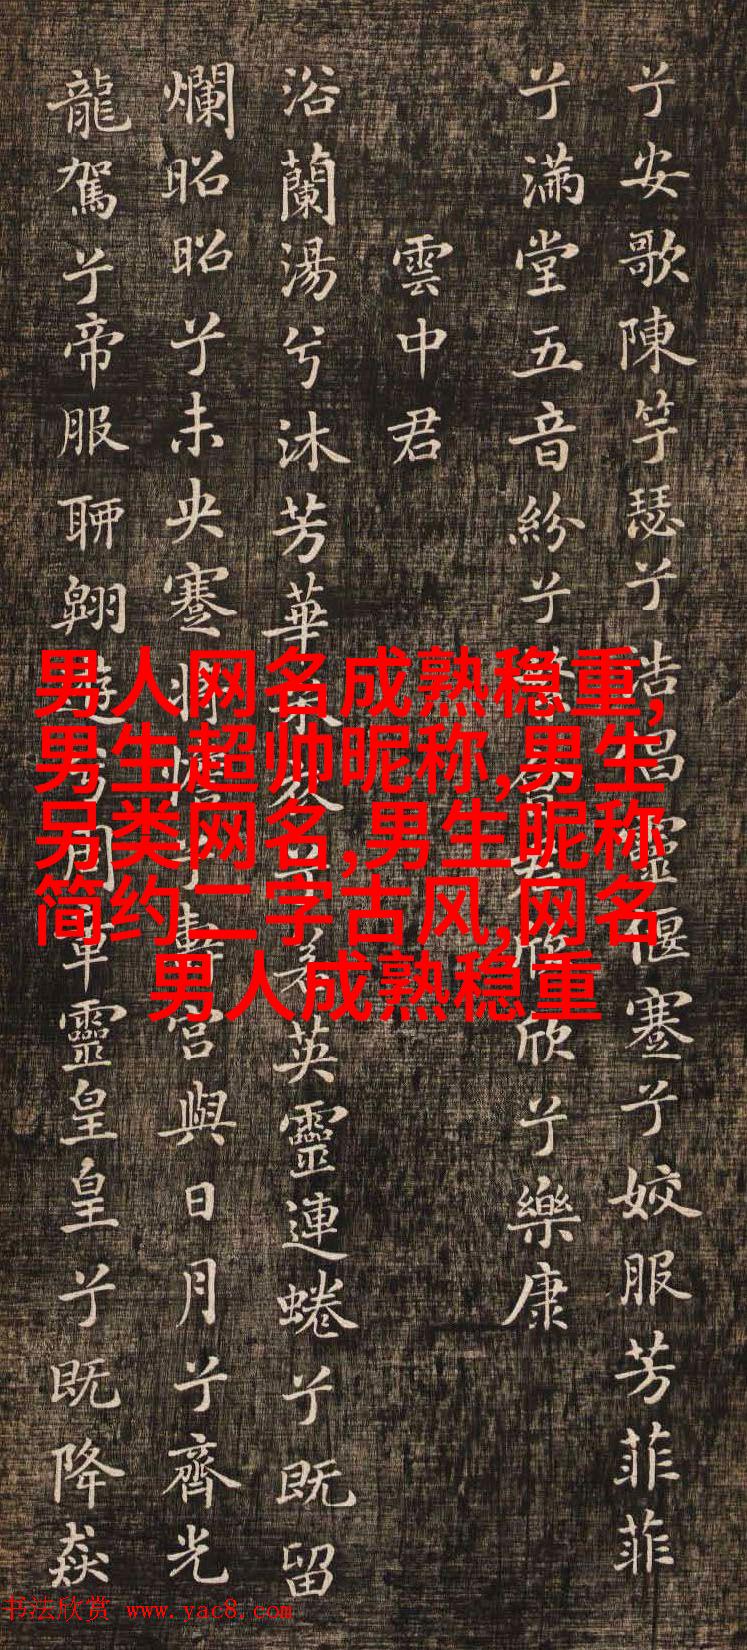 兮安歌陳竽瑟兮浩昌靈偃蹇兮姣服芳菲菲
兮滿堂五音紛兮繁會君欣欣兮樂康
雲中君
浴蘭湯兮沐芳華采衣兮若英靈連蜷兮既留
爛昭昭兮未央蹇將憺兮壽宮與日月兮齊光
龍駕兮帝服聊翱遊兮周章靈皇皇兮既降猋
男人网名成熟稳重,
男生超帅昵称,男生
另类网名,男生昵称
简约二字古风,网名
男人成熟稳重
书法欣赏 www.yac8.com